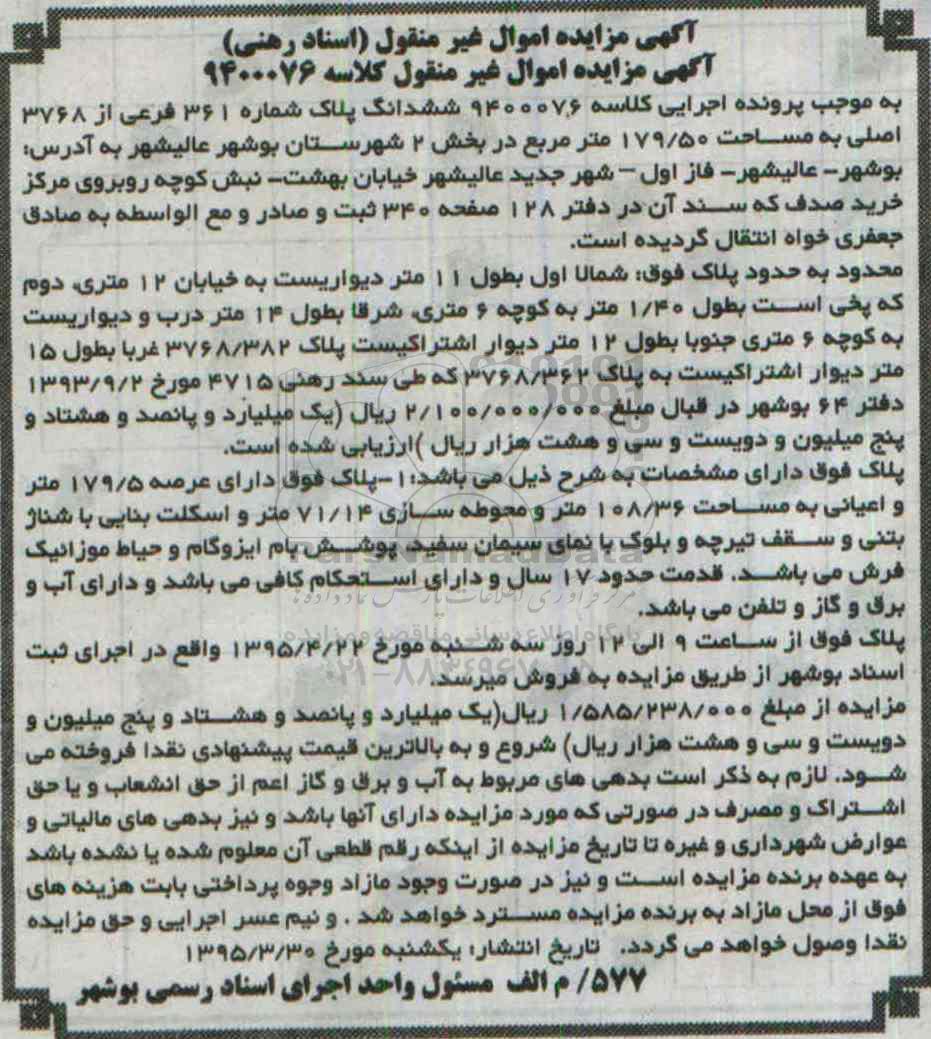 آگهی مزایده اموال غیر منقول (اسناد رهنی)
آگهی مزایده اموال غیر منقول کلاسه ۹۴۰۰۰۷۶
به موجب پرونده اجرایی کلاسه ۹۴۰۰۰۷۶ ششدانگ پلاک شماره ۳۶۱ فرعی از ۳۷۶۸
اصلی به مساحت ۱۷۹/۵۰ متر مربع در بخش ۲ شهرستان بوشهر عالیشهر به آدرس:
بوشهر- عالیشهر- فاز اول – شهر جدید عالیشهر خیابان بهشت- نبش کوچه روبروی مرکز
خرید صدف که سند آن در دفتر ۱۲۸ صفحه ۳۴۰ ثبت و صادر و مع الواسطه به صادق
جعفری خواه انتقال گردیده است.
محدود به حدود پلاک فوق: شمالا اول بطول ۱۱ متر دیواریست به خیابان ۱۲ متری، دوم
که پخی است بطول ۱/۴۰ متر به کوچه ۶ متری، شرقا بطول ۱۴ متر درب و دیواریست
به کوچه ۶ متری جنوبا بطول ۱۲ متر دیوار اشتراکیست پلاک ۳۷۶۸/۳۸۲ غربا بطول ۱۵
متر دیوار اشتراکیست به پلاک ۳۷۶۸/۳۶۲ که طی سند رهنی ۴۷۱۵ مورخ ۱۳۹۳/۹/۲
دفتر ۶۴ بوشهر در قبال مبلغ ۲/۱۰۰/۰۰۰/۰۰۰ ریال (یک میلیارد و پانصد و هشتاد و
پنج میلیون و دویست و سی و هشت هزار ریال )ارزیابی شده است.
پلاک فوق دارای مشخصات به شرح ذیل می باشد:۱-پلاک فوق دارای عرصه ۱۷۹/۵ متر
و اعیانی به مساحت ۱۰۸/۳۶ متر و محوطه سازی ۷۱/۱۴ متر و اسکلت بنایی با شناژ
بتنی و سقف تیرچه و بلوک با نمای سیمان سفید، پوشش بام ایزوگام و حیاط موزائیک
فرش می باشد. قدمت حدود ۱۷ سال و دارای استحکام کافی می باشد و دارای آب و
برق و گاز و تلفن می باشد.
پلاک فوق از ساعت ۹ الی ۱۲ روز سه شنبه مورخ ۱۳۹۵/۴/۲۲ واقع در اجرای ثبت
اسناد بوشهر از طریق مزایده به فروش میرسد.
مزایده از مبلغ ۱/۵۸۵/۲۳۸/۰۰۰ ریال(یک میلیارد و پانصد و هشتاد و پنج میلیون و
دویست و سی و هشت هزار ریال) شروع و به بالاترین قیمت پیشنهادی نقدا فروخته می
شود. لازم به ذکر است بدهی های مربوط به آب و برق و گاز اعم از حق انشعاب و یا حق
اشتراک و مصرف در صورتی که مورد مزایده دارای آنها باشد و نیز بدهی های مالیاتی و
عوارض شهرداری و غیره تا تاریخ مزایده از اینکه رقم قطعی آن معلوم شده یا نشده باشد
به عهده برنده مزایده است و نیز در صورت وجود مازاد وجوه پرداختی بابت هزینه های
فوق از محل مازاد به برنده مزایده مسترد خواهد شد . و نیم عسر اجرایی و حق مزایده
نقدا وصول خواهد می گردد. تاریخ انتشار: یکشنبه مورخ ۱۳۹۵/۳/۳۰
۵۷۷/ م الف مسئول واحد اجرای اسناد رسمی بوشهر
ParsNamadData
پایگاه اطلاع رسانی مناقصه و مزایده